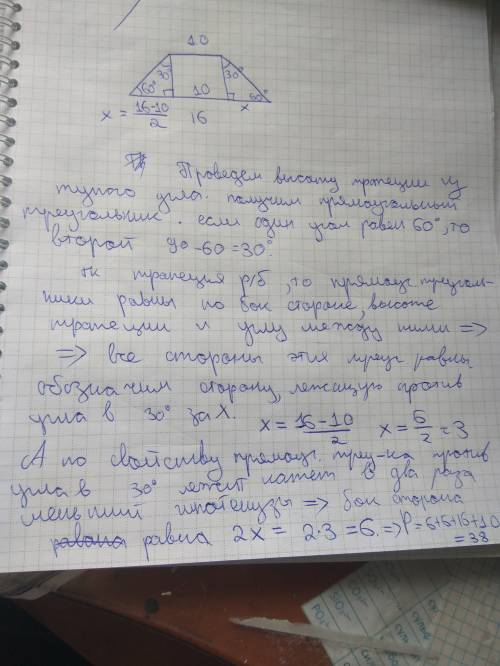 10
30° 30°
60° 10 60°
x = 16-10 / 2 16 x
Проведем высоту трапеции из
тупого угла. получим прямоугольный
треугольник. если один угол равен 60°, то
второй 90-60=30°.
тк трапеция р/б, то прямоуг треуголь-
ники равны по бок стороне, высоте
трапеции и углу между ними =>
=> все стороны этих треуг равны
обозначим сторону, лежащую против
угла в 30° за X. x = 16-10 / 2 x = 6/2 = 3
А по свойству прямоуг. треу-ка против
угла в 30° лежит катет в два раза
меньший гипотенузы => бок сторона
равна 2x = 2·3 = 6. => P = 6+6+16+10
= 38